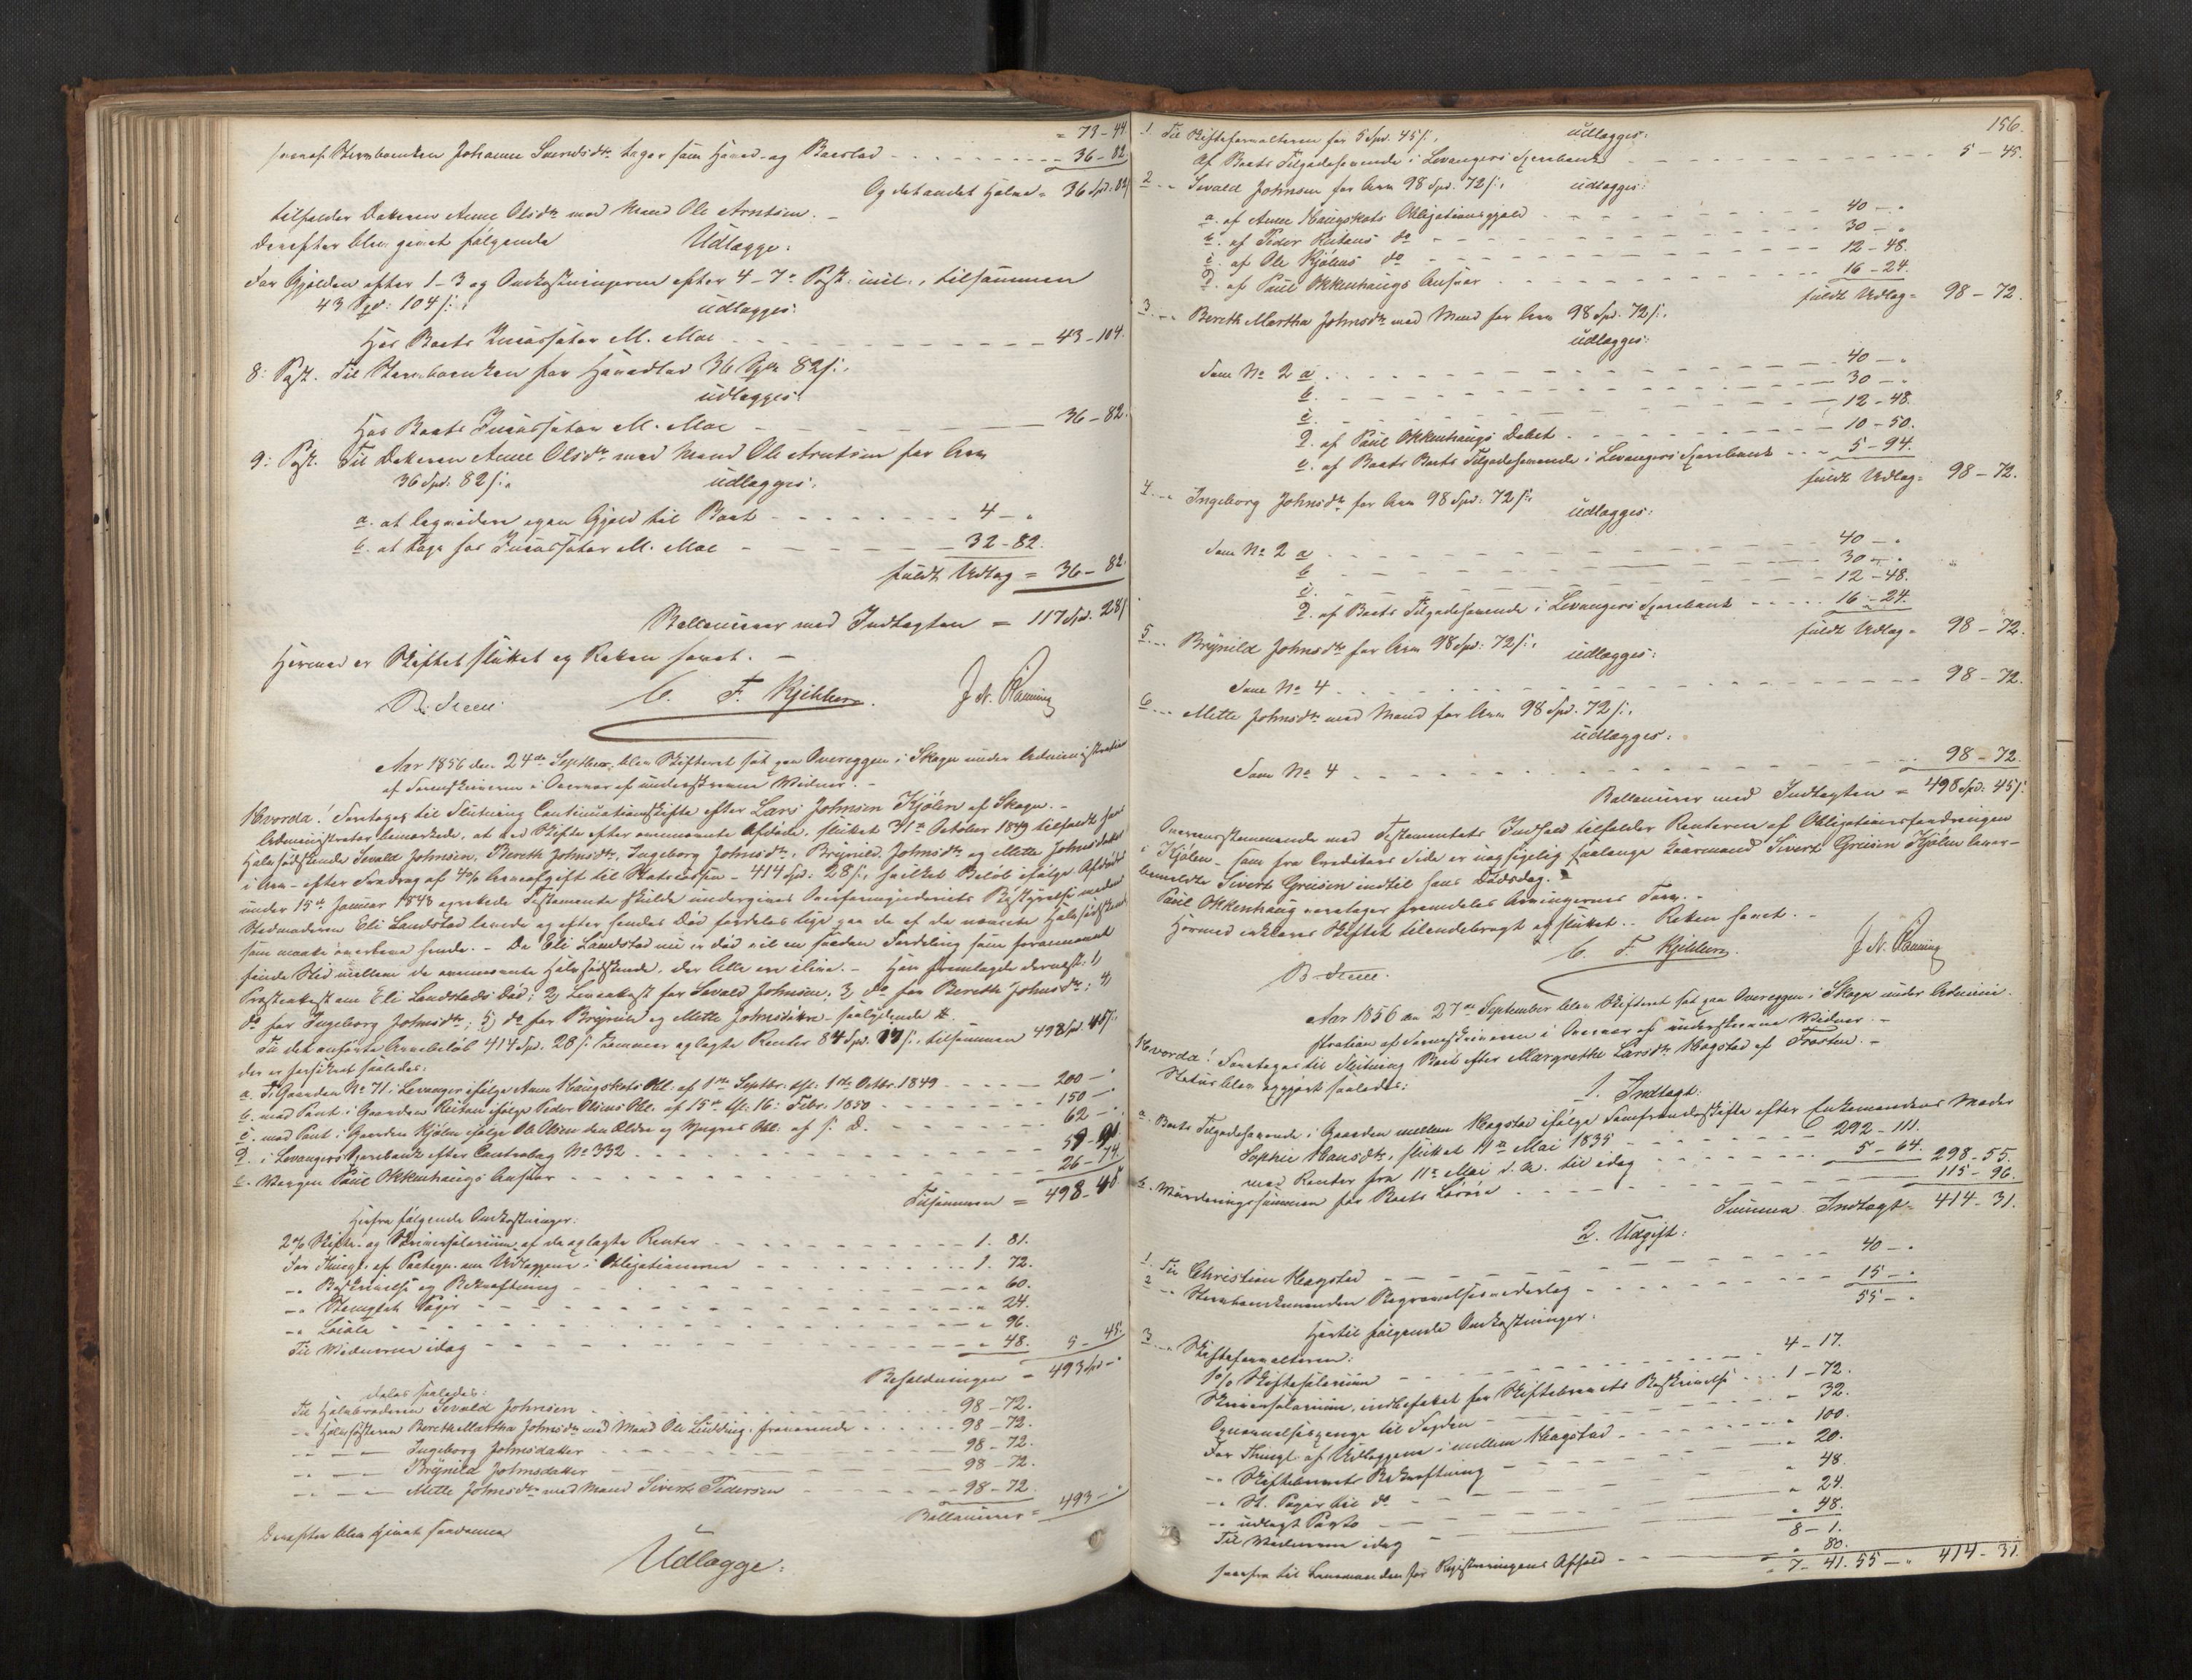 = 73-44.
hvoraf Sterboenken Johanne Svendsdtr. tager som Hoved- og Boeslod - - - 36-82
Og det andet Halve = 36 Spd: 82/
tilfalder Datteren Anne Olsdtr. med Mand Ole Arntsen. -
Derefter blev givet følgende Udlægge:
For Gjælden efter 1-3 og Omkostningerne efter 4-7de Post: incl:, tilsammen
43 Spd: 104/: udlægges:
Hos Boets Incassator M. Moe - - - 43-104.
8: Post. Til Sterboenken for Hovedlod 36 Spd 82/:,
udlægges:
Hos Boets Incassator M. Moe - - - 36-82.
9: Post. Til Datteren Anne Olsdtr. med Mand Ole Arntsen for Arv
36 Spd: 82/:, udlægges:
a. at beholde egen Gjæld til Boet - - - 4-"
b. at tage hos Incassator M. Moe - - - 32-82.
fuldt Udlæg = 36-82.
Ballancerer med Indtægten = 117 Spd. 28/
Hermed er Skiftet sluttet og Retten hævet. -
B. Steen. C. F. Kjeldsen. J. N. Ramming
Aar 1856 den 24de Septbr. blev Skifteret sat paa Overeggen i Skogn under Administration
af Sorenskriveren i Overvær af underskrevne Vidner. -
Hvorda! Foretoges til Slutning Continuationsskifte efter Lars Johnsen Kjølen af Skogn. -
Administrator bemærkede, at ved Skifte efter ommeldte Afdøde, sluttet 31te October 1849 tilfaldt hans
Halvsødskende Sevald Johnsen, Bereth Johnsdtr., Ingeborg Johnsdtr., Brynild Johnsdtr. og Mette Johnsdatter
i Arv - efter Fradrag af 4% Arveafgift til Statscassen - 414 Spd: 28/:, hvilket Beløb ifølge Afdødes
under 15de Januar 1843 oprettede Testamente skulde undergives Overformynderiets Bestyrelse medens
Stedmoderen Eli Landstad levede og efter hendes Død fordeles lige paa de af de nævnte Halvsødskende
som maatte overleve hende. - Da Eli Landstad nu er død vil en saadan Fordeling som forommeldt
finde Sted mellem de ommeldte Halvsødskende, der Alle ere ilive. - Han fremlagde dernæst: 1,
Præsteattest om Eli Landstads Død; 2, Leveattest for Sevald Johnsen, 3, do for Bereth Johnsdtr; 4,
do for Ingeborg Johnsdtr; 5) do for Brynild og Mette Johnsdøttre - saalydende #.
Til det anførte Arvebeløb 414 Spd. 28/: kommer oplagte Renter 84 Spd. 17/:, tilsammen 498 Spd. 45/:
der er forsikret saaledes:
a. I Gaarden No 71 i Levanger ifølge Anne Haugskots Obl. af 1ste Septbr. thl: 1ste Octbr. 1849 - - - 200-"
b. med Pant i Gaarden Reitan ifølge Peder Olsens Obl. af 15de thl: 16: Febr. 1850 - - - 150-"
c. med Pant i Gaarden Kjølen ifølge Ole Olsen den Ældre og Yngres Obl: af s. D. - - - 62-"
d. i Levangers Sparebank efter Contrabog No 332 - - - 59-91
e. Værgen Paul Okkenhaugs Ansvar - - - 26-74
Tilsammen = 498-45
Herfra følgende Omkostninger:
2% Skifte- og Skriversalarium af de oplagte Renter - - - 1. 81.
For Thingl. af Paategn. om Udlæggene i Obligationerne - - - 1. 72.
-" Beskrivelse og Bekræftning - - - " 60.
-" Stemplet Papir - - - " 24.
-" Locale - - - " 96.
Til Vidnerne idag - - - " 48. 5-45.
Beholdningen = 493 Spd -"
deles saaledes:
Til Halvbroderen Sevald Johnsen - - - 98-72.
-" Halvsøsteren Bereth Martha Johnsdtr med Mand Ole Lidding, fraværende - - - 98-72.
-" - Ingeborg Johnsdatter - - - 98-72.
-" - Brynild Johnsdatter - - - 98-72.
-" - Mette Johnsdtr med Mand Sivert Pedersen - - - 98-72.
Ballancerer = 493-"
Derefter blev givet saadanne
Udlægge:
156.
1. Til Skifteforvalteren for 5 Spd. 45/:, udlægges:
Af Boets Tilgodehavende i Levangers Sparebank - - - 5-45.
2 -" Sevald Johnsen for Arv 98 Spd. 72/:, udlægges:
a. af Anne Haugskots Obligationsgjæld - - - 40-"
b. af Peder Reitans do - - - 30-"
c. af Ole Kjølens do - - - 12-48.
d. af Paul Okkenhaugs Ansvar - - - 16-24.
fuldt Udlæg = 98-72.
3 -" Bereth Martha Johnsdtr med Mand for Arv 98 Spd. 72/:,
udlægges:
Som No 2 a - - - 40-"
b. - - - 30-"
c. - - - 12-48.
d. af Paul Okkenhaugs Debet - - - 10-50.
e. af Boets Boets Tilgodehavende i Levangers Sparebank - - - 5-94.
fuldt Udlæg = 98-72.
4 -" Ingeborg Johnsdtr for Arv 98 Spd: 72/:,
udlægges:
Som No 2 a - - - 40-"
b - - - 30-"
c. - - - 12-48.
d. af Boets Tilgodehavende i Levangers Sparebank - - - 16-24.
fuldt Udlæg = 98-72.
5 -" Brynild Johnsdtr for Arv 98 Spd: 72/:,
udlægges:
Som No 4 - - - 98-72.
6 -" Mette Johnsdtr med Mand for Arv 98 Spd. 72/:,
udlægges:
Som No 4 - - - 98-72.
Ballancerer med Indtægten = 498 Spd: 45/:
Overensstemmende med Testamentets Indhold tilfalder Renterne af Obligationsfordringen
i Kjølen - som fra Creditors Side er uopsigelig saalænge Kaarmand Sivert Grussen Kjølen lever -
bemeldte Sivert Grussen indtil hans Dødsdag.
Paul Okkenhaug varetager fremdeles Arvingernes Tarv. -
Hermed erklæres Skiftet tilendebragt og sluttet. - Retten hævet. -
B. Steen. C. F. Kjeldsen. J. N. Ramming
Aar 1856 den 27de September blev Skifteret sat paa Overeggen i Skogn under Admini-
stration af Sorenskriveren i Overvær af underskrevne Vidner. -
Hvorda! Foretoges til Slutning Boet efter Margrethe Larsdtr Hagstad af Frosten. -
Status blev opgjort saaledes:
1. Indtægt:
a. Boets Tilgodehavende i Gaarden mellem Hagstad ifølge Samfrændeskifte efter Enkemandens Moder
Sophie Hansdtr, sluttet 11te Mai 1835 - - - 292-111.
med Renter fra 11te Mai d. A. til idag - - - 5-64. 298-55.
b. Vurderingssummen for Boets Løsøre - - - 115-96.
Summa Indtægt = 414-31.
2. Udgift:
1. Til Christian Hagstad - - - 40-"
2 -" Sterboenkemanden Begravelsesvederlag - - - 15-"
55-"
Hertil følgende Omkostninger:
3 -" Skifteforvalteren:
1% Skiftesalarium - - - 4-17.
Skriversalarium, indbefattet for Skiftebrevets Beskrivelse - - - 1-72.
Opnævnelsespenge til Fogden - - - " 32.
For Thingl. af Udlæggene i mellem Hagstad - - - " 100.
-" Skiftebrevets Bekræftning - - - " 20.
-" St. Papir til do - - - " 48.
-" udlagt Porto - - - " 24.
Til Vidnerne idag - - - " 48.
8-1.
herfra til Lensmanden for Registreringens Afhold - - - " 80.
" 7-41. 55-" 414-31.